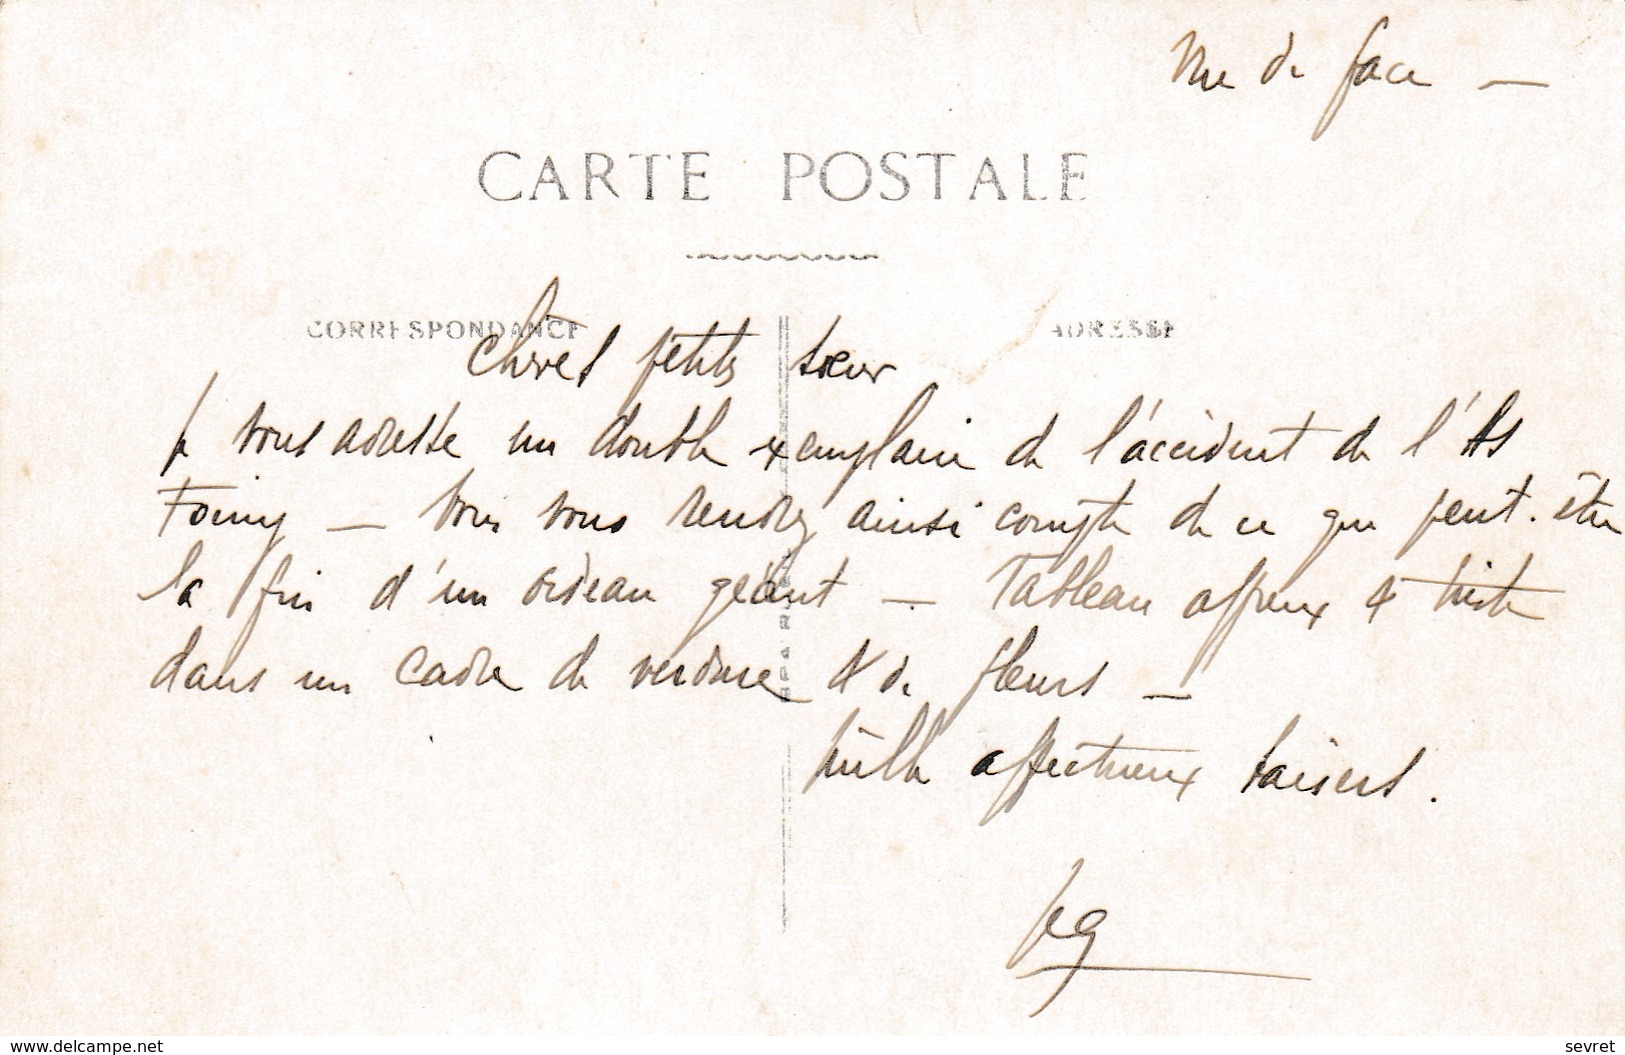 Vue de face —
CARTE POSTALE
CORRESPONDANCE
ADRESSE
Chères petites sœur
Je vous adresse un double exemplaire de l'accident de l'As
Foiny — Vous vous rendrez ainsi compte de ce que peut-être
la fin d'un oiseau géant — Tableau affreux & triste
dans un cadre de verdure & de fleurs —
Mille affectueux baisers.
www.delcampe.net
sevret